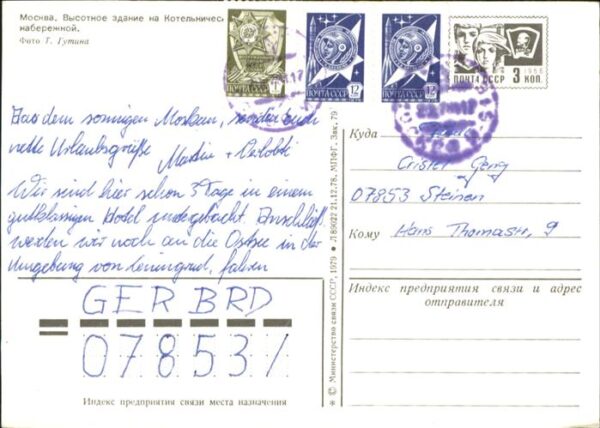 Москва. Высотное здание на Котельничес
набережной.
Фото Г. Гутина
ПОЧТА СССР 1
ПОЧТА СССР 12
ПОЧТА СССР 12
1966
ПОЧТА СССР 3 КОП.
Aus dem sonnigen Moskau, senden Euch
nette Urlaubsgrüße Martin +
Wir sind hier schon 3 Tage in einem
gutklassigen Hotel untergebracht. Anschließ.
werden wir noch an die Ostsee in der
Umgebung von Leningrad, fahren
GER BRD
07853/
Индекс предприятия связи места назначения
* © Министерство связи СССР, 1979 * Л 89022 21.12.78. МПФГ, Зак. 79
Куда Fam.
Georg
07853 Steinen
Кому Hans Thomastr. 9
Индекс предприятия связи и адрес
отправителя